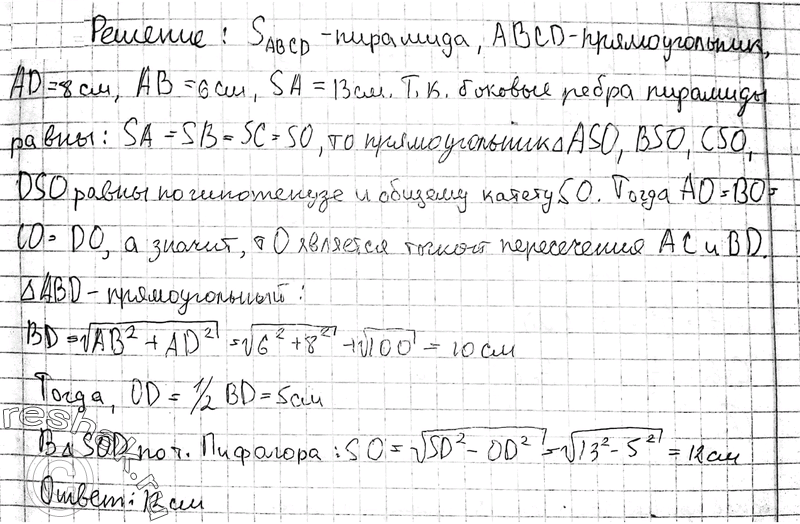 Решение: SABCD - пирамида, ABCD - прямоугольник,
AD = 8 см, AB = 6 см, SA = 13 см. Т.к. боковые ребра пирамиды
равны: SA = SB = SC = SO, то прямоугольник △ ASO, BSO, CSO,
DSO равны по гипотенузе и общему катету SO. Тогда AO = BO =
CO = DO, а значит, т O является точкой пересечения AC и BD.
△ABD - прямоугольный:
BD = √AB² + AD² = √6² + 8² + √100 = 10 см
Тогда, OD = 1/2 BD = 5 см
В △ SOD по т. Пифагора: SO = √SD² - OD² = √13² - 5² = 12 см
Ответ: 12 см
reshak.ru
©